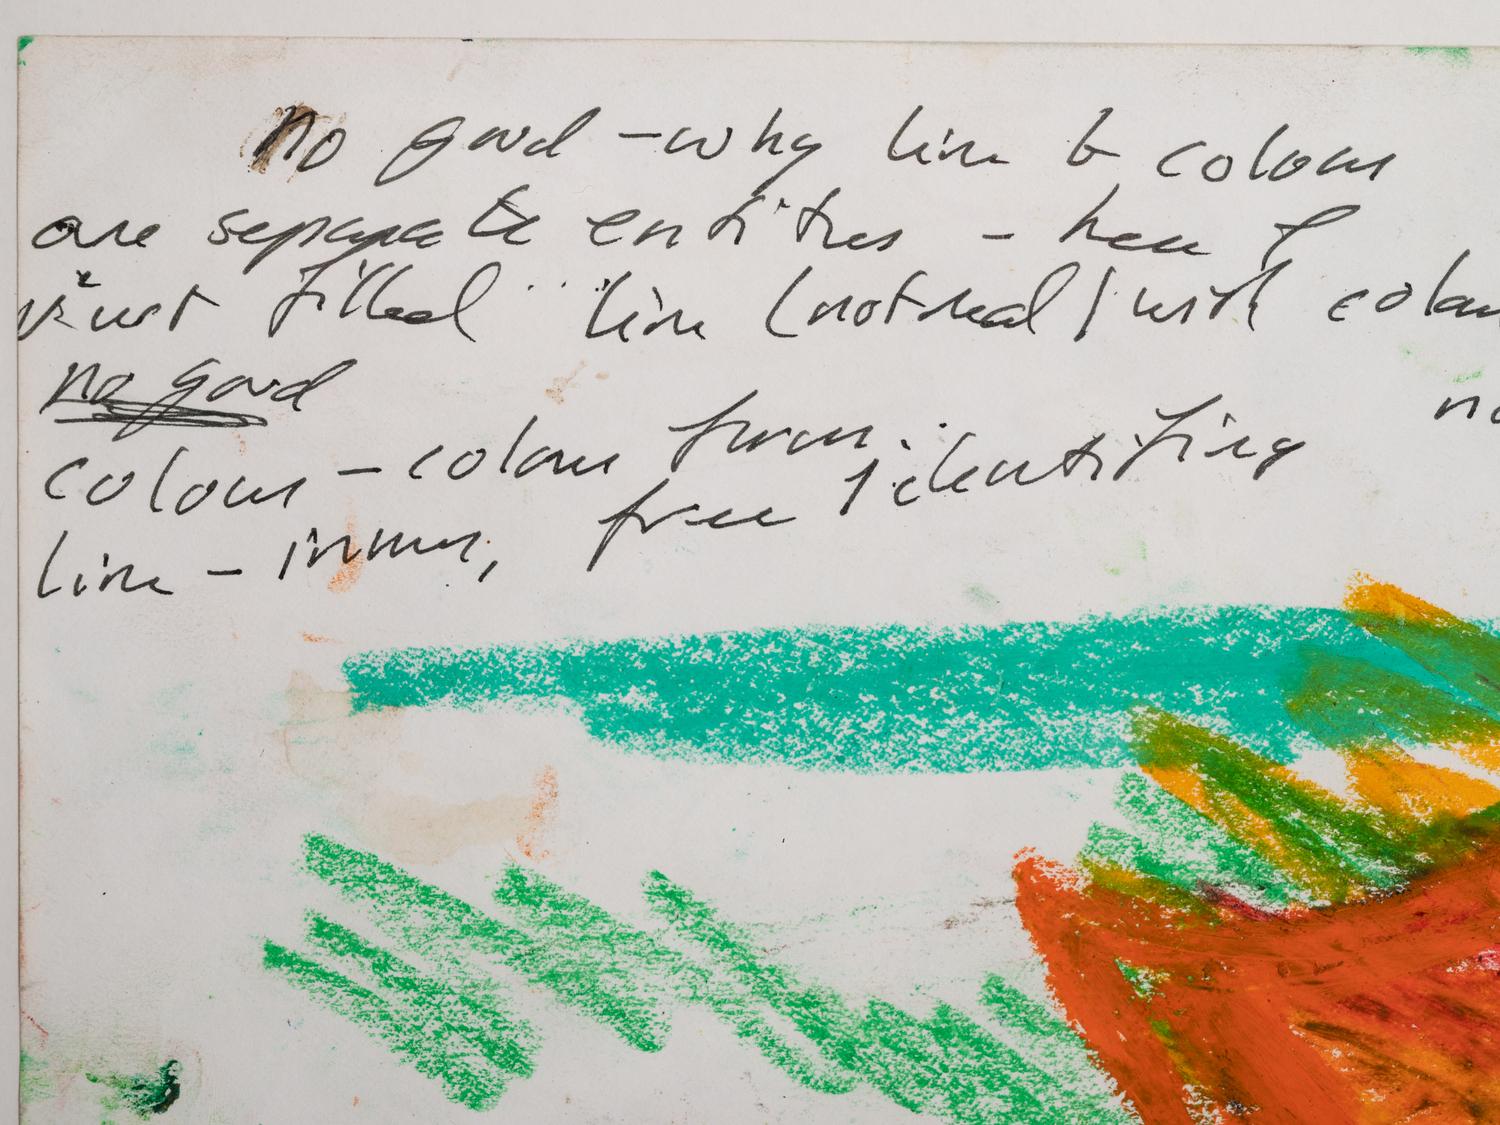 no good – why line & colour
are separate entities – here I
just filled line (not real) with colour
no good
no
colour – colour form
line – inner, free identifying